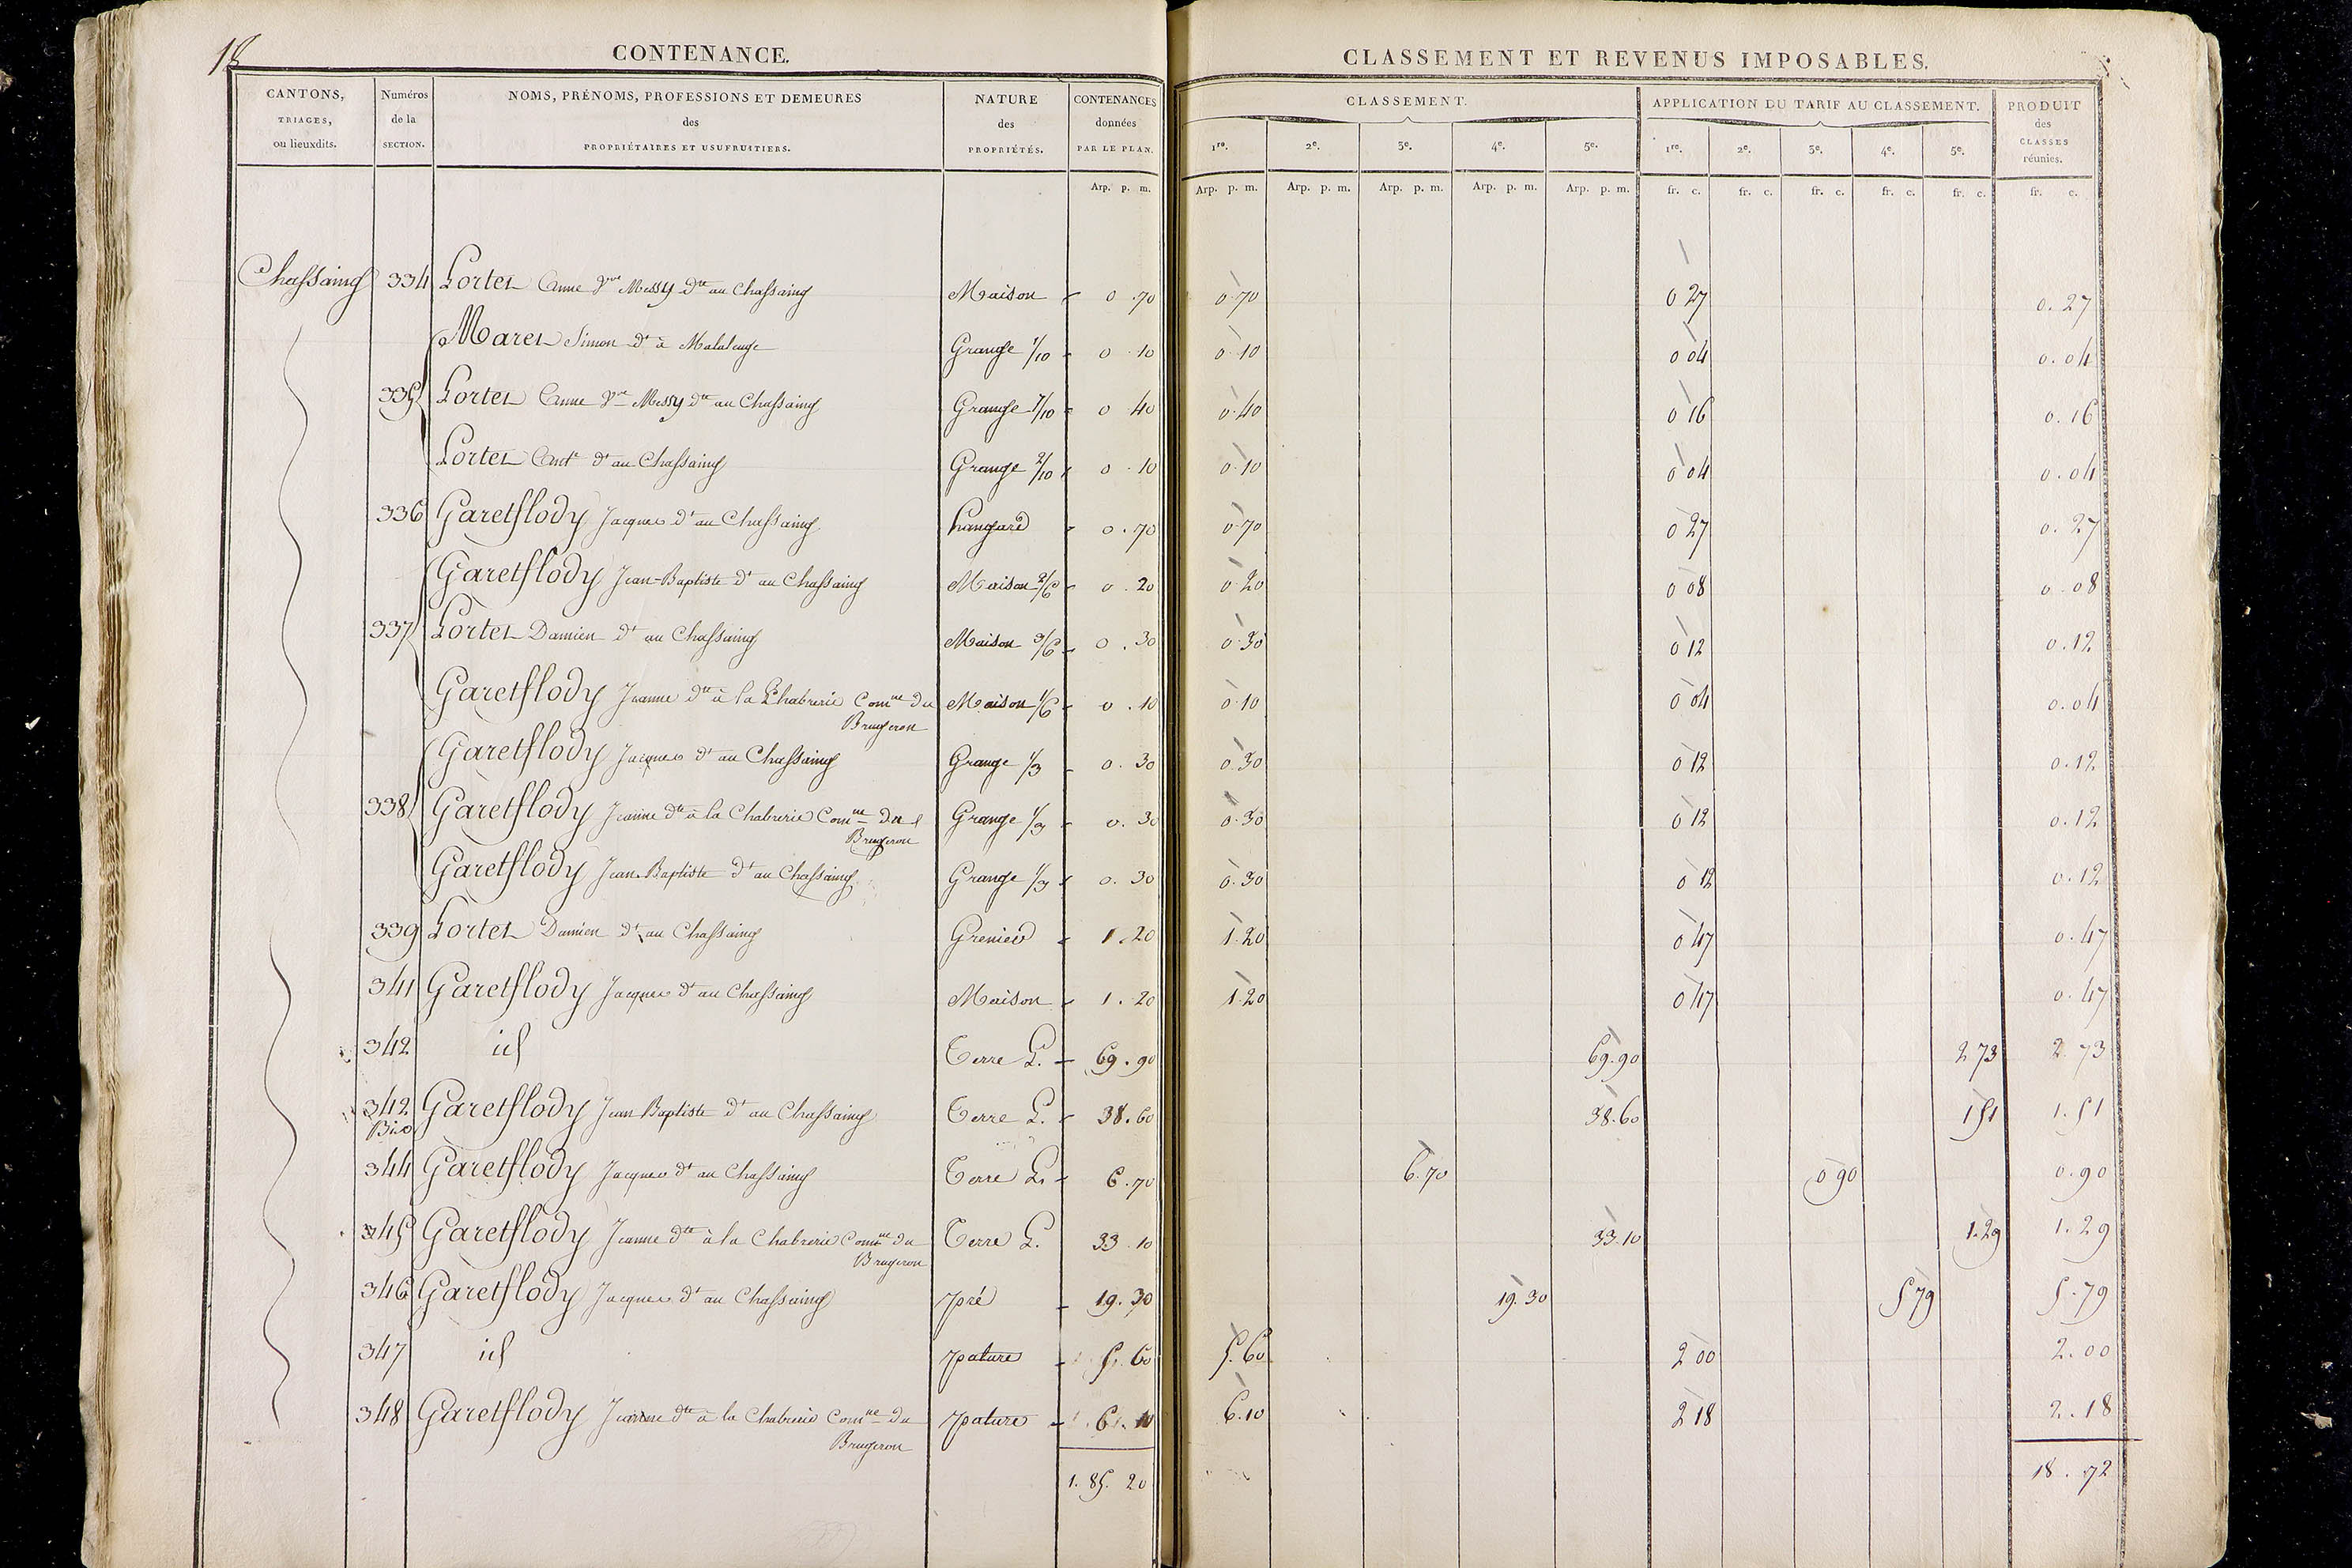 18
CONTENANCE.
CLASSEMENT ET REVENUS IMPOSABLES.
CANTONS, TRIAGES, ou lieuxdits.
Numéros de la SECTION.
NOMS, PRÉNOMS, PROFESSIONS ET DEMEURES des PROPRIÉTAIRES ET USUFRUITIERS.
NATURE des PROPRIÉTÉS.
CONTENANCES données PAR LE PLAN.
CLASSEMENT.
APPLICATION DU TARIF AU CLASSEMENT.
PRODUIT des CLASSES réunies.
1re. 2e. 3e. 4e. 5e. 1re. 2e. 3e. 4e. 5e.
Arp. p. m. Arp. p. m. Arp. p. m. Arp. p. m. Arp. p. m. Arp. p. m. fr. c. fr. c. fr. c. fr. c. fr. c. fr. c.
Chassaing 334 Portet Anne Vve Messy dte au Chassaing Maison 0.70 0.70 0 27 0.27
Maret Simon dt à Malaleuge Grange 1/10 0.10 0.10 0 04 0.04
335 Portet Anne Vve Messy dte au Chassaing Grange 7/10 0 40 0.40 0 16 0.16
Portet Ant. dt au Chassaing Grange 2/10 0.10 0.10 0 04 0.04
336 Garetflody Jacques dt au Chassaing hangard 0.70 0.70 0 27 0.27
Garetflody Jean-Baptiste dt au Chassaing Maison 2/6 0.20 0.20 0 08 0.08
337 Portet Damien dt au Chassaing Maison 3/6 0.30 0.30 0 12 0.12
Garetflody Jeanne dte à la Chabrerie Comne du Maison 1/6 0.10 0.10 0 04 0.04
Brugeron
Garetflody Jacques dt au Chassaing Grange 1/3 0.30 0.30 0 12 0.12
338 Garetflody Jeanne dte à la Chabrerie Comne du Grange 1/3 0.30 0.30 0 12 0.12
Brugeron
Garetflody Jean-Baptiste dt au Chassaing Grange 1/3 0.30 0.30 0 12 0.12
339 Portet Damien dt au Chassaing Grenier 1.20 1.20 0 47 0.47
341 Garetflody Jacques dt au Chassaing Maison 1.20 1.20 0 47 0.47
342 id Terre L. 69.90 69.90 2 73 2.73
342 Bis Garetflody Jean Baptiste dt au Chassaing Terre L. 38.60 38.60 1 51 1.51
344 Garetflody Jacques dt au Chassaing Terre L. 6.70 6.70 0 90 0.90
345 Garetflody Jeanne dte à la Chabrerie Comne du Terre L. 33.10 33.10 1.29 1.29
Brugeron
346 Garetflody Jacques dt au Chassaing pré 19.30 19.30 5 79 5.79
347 id pature 5.60 5.60 2 00 2.00
348 Garetflody Jeanne dte à la Chabrerie Comne du pature 6.10 6.10 2 18 2.18
Brugeron
1.85.20 18.72